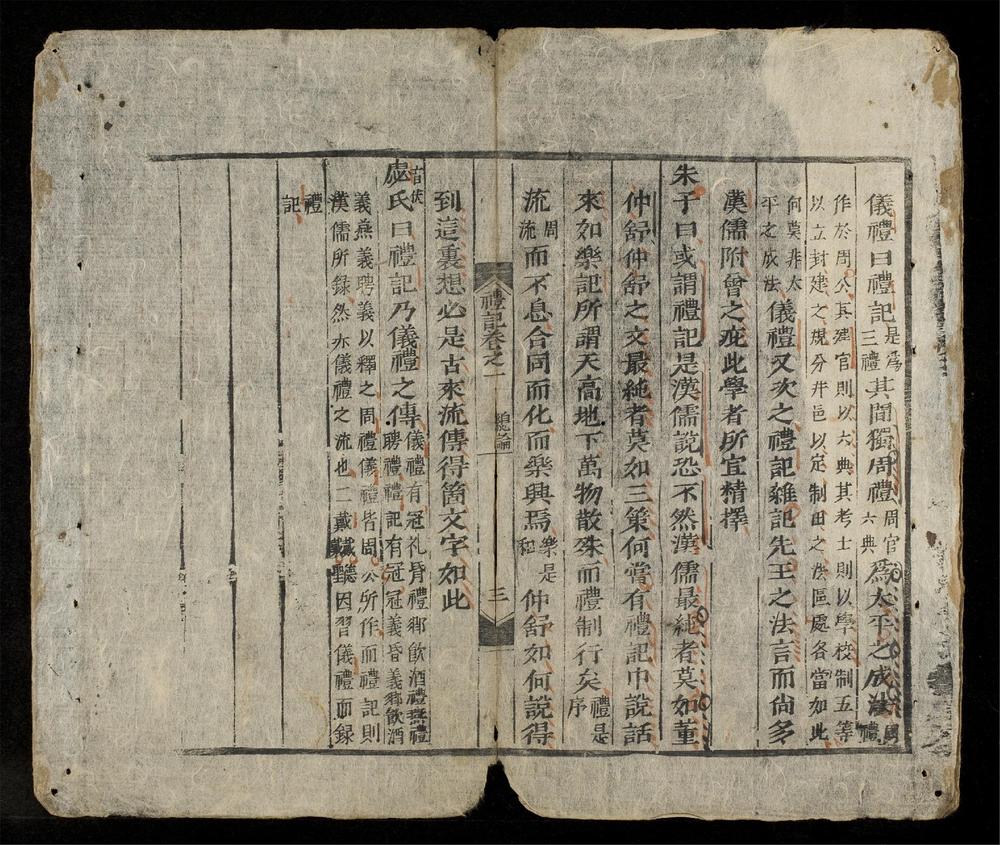 儀禮曰禮記是爲三禮其間獨周禮周官六典爲太平之成法周禮
作於周公其建官則以六典其考士則以學校制五等
以立封建之規分井邑以定制田之法區處各當如此
何莫非太平之成法儀禮又次之禮記雜記先王之法言而尙多
漢儒附會之疵此學者所宜精擇
朱子曰或謂禮記是漢儒說恐不然漢儒最純者莫如董
仲舒仲舒之文最純者莫如三策何嘗有禮記中說話
來如樂記所謂天高地下萬物散殊而禮制行矣禮是序
流周流而不息合同而化而樂興焉樂是和仲舒如何說得
禮記卷之一 總論 三
到這裏想必是古來流傳得箇文字如此
虙音伏氏曰禮記乃儀禮之傳儀禮有冠礼昏禮鄉飲酒禮燕禮聘禮禮記有冠義昏義鄉飲酒
義燕義聘義以釋之周禮儀禮皆周公所作而禮記則
漢儒所録然亦儀禮之流也二戴聽因習儀禮而録
禮記